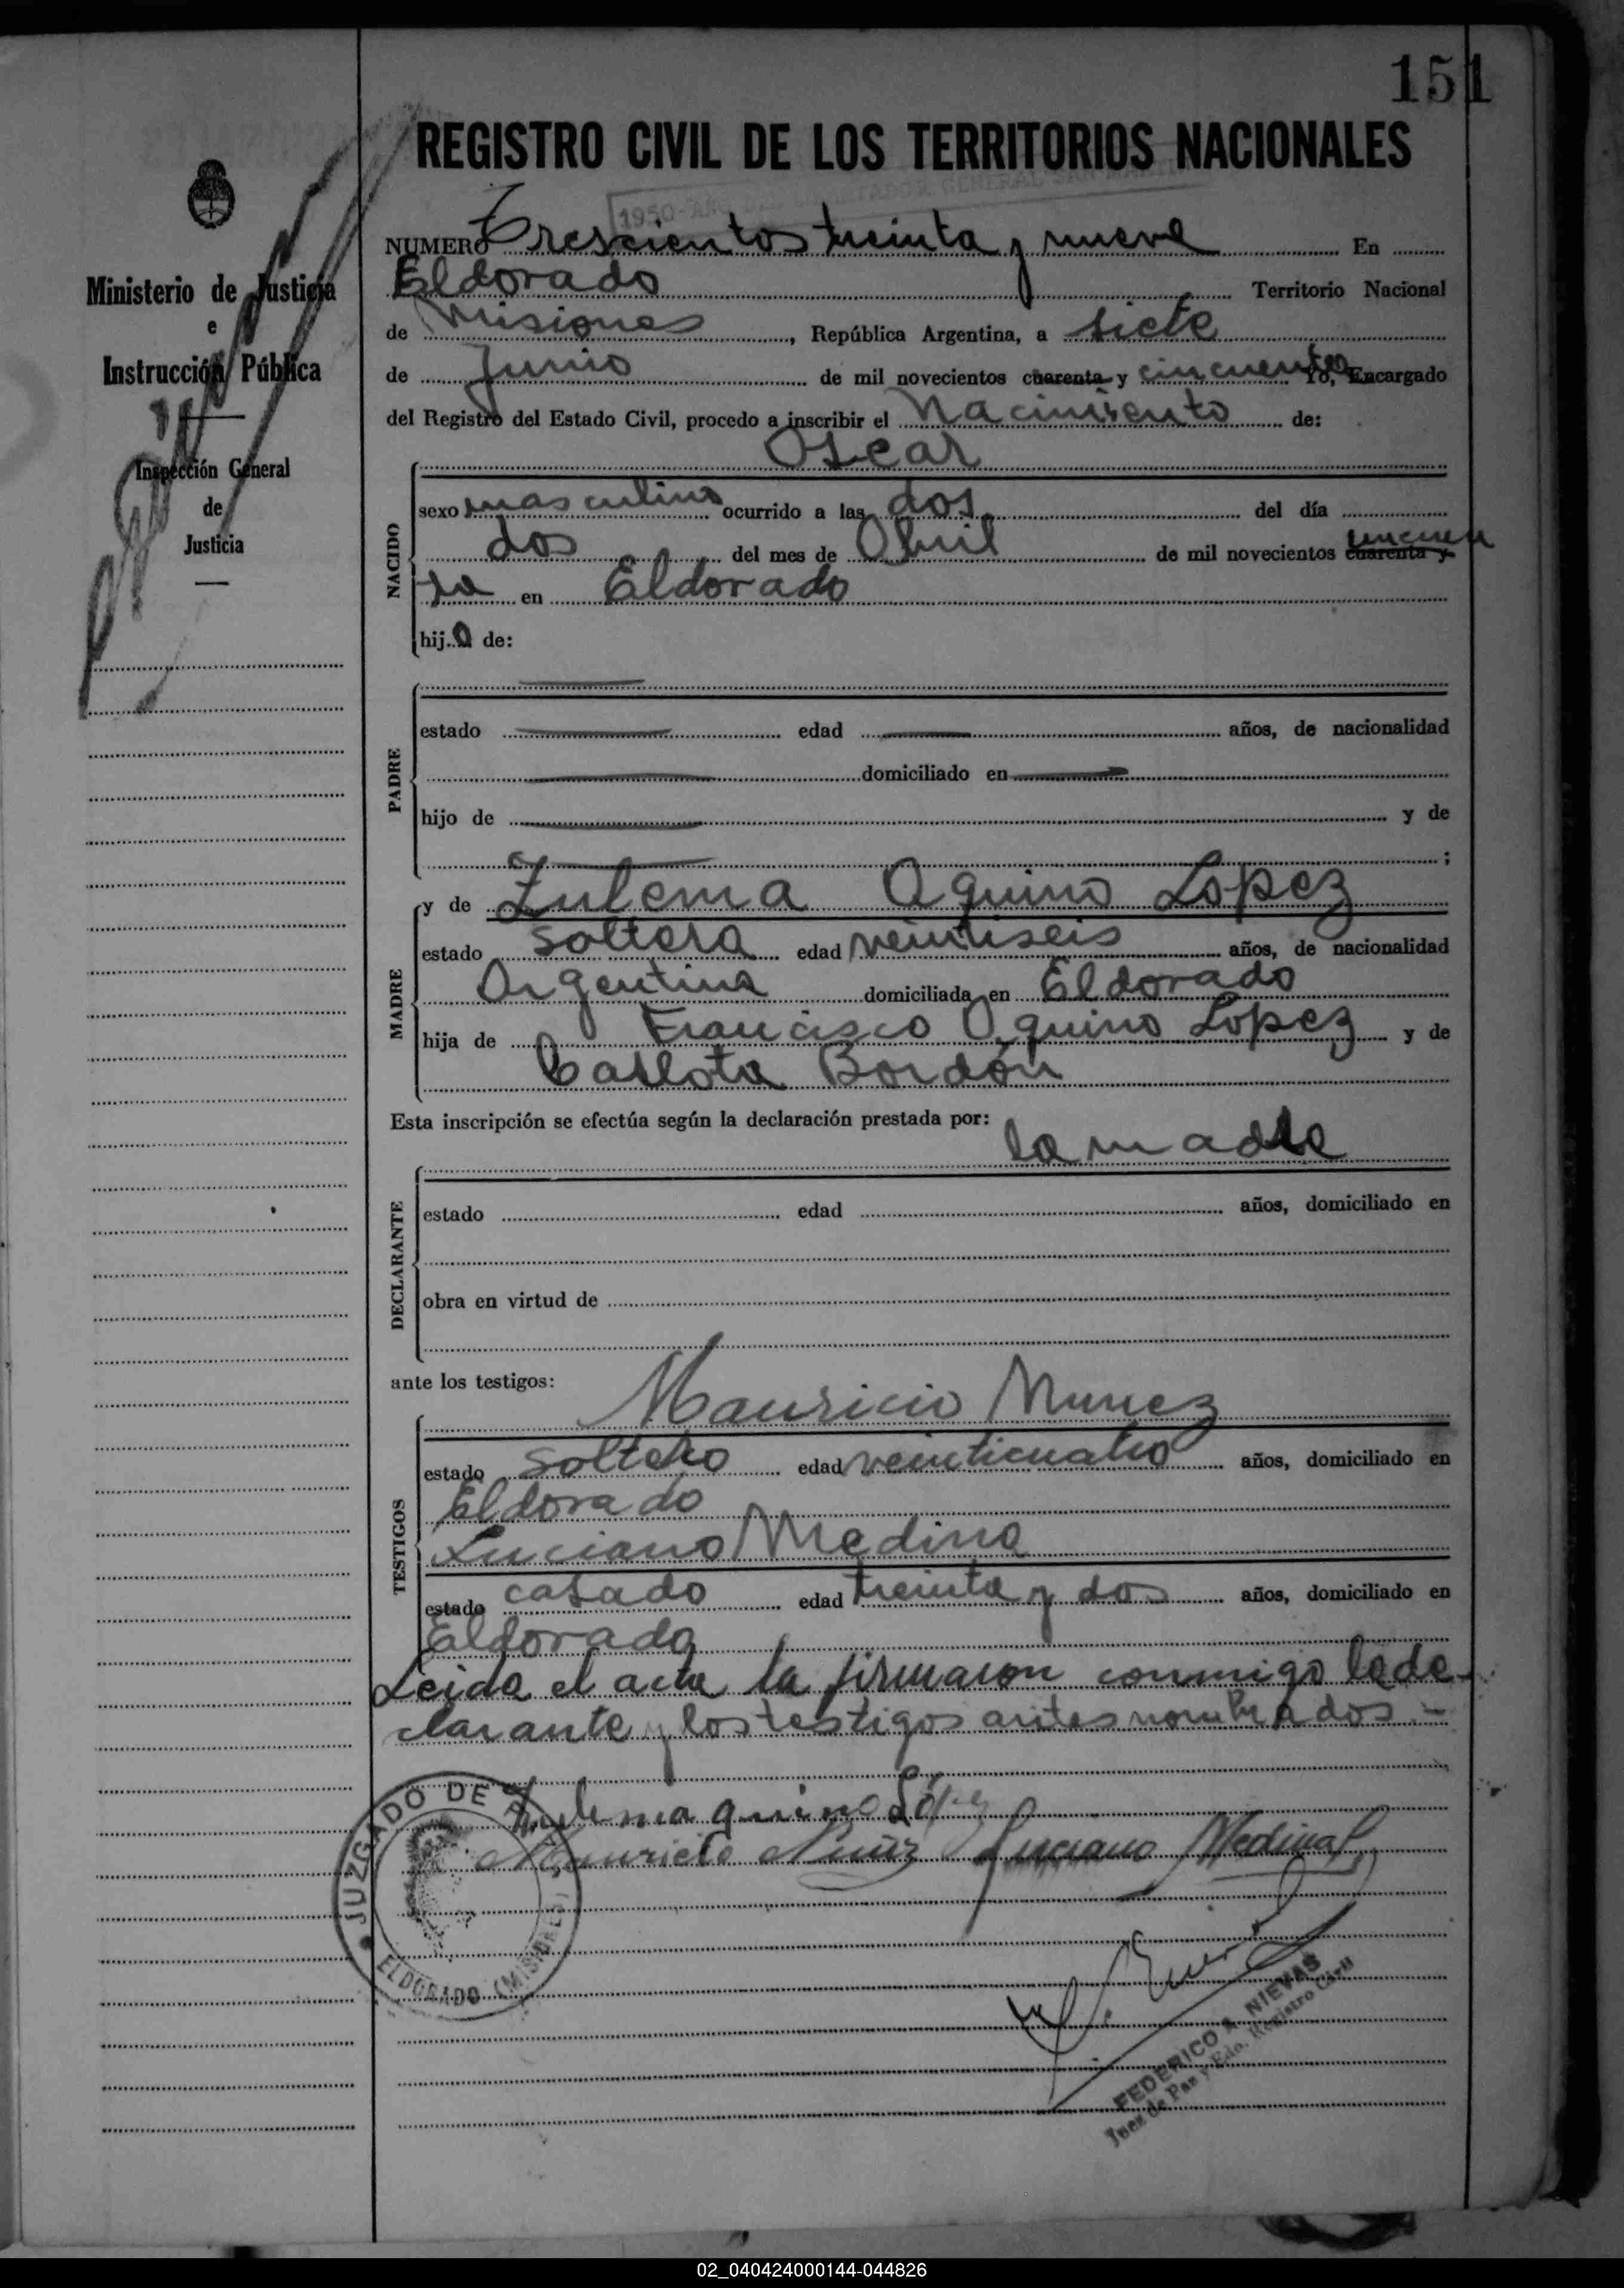 151
REGISTRO CIVIL DE LOS TERRITORIOS NACIONALES
1950-AÑO DEL LIBERTADOR GENERAL SAN MARTIN
Ministerio de Justicia
e
Instrucción Pública
Inspección General
de
Justicia
NUMERO Trescientos treinta y nueve En
Eldorado Territorio Nacional
de Misiones, República Argentina, a siete
de Junio de mil novecientos cuarenta y cincuenta Yo, Encargado
del Registro del Estado Civil, procedo a inscribir el Nacimiento de:
Oscar
NACIDO
sexo masculino ocurrido a las dos del día
dos del mes de Abril de mil novecientos cuarenta y cincuen
ta en Eldorado
hijo de:
PADRE
estado edad años, de nacionalidad
domiciliado en
hijo de y de
;
MADRE
y de Zulema Aquino Lopez
estado soltera edad veintiseis años, de nacionalidad
Argentina domiciliada en Eldorado
hija de Francisco Aquino Lopez y de
Carlota Bordón
Esta inscripción se efectúa según la declaración prestada por:
la madre
DECLARANTE
estado edad años, domiciliado en
obra en virtud de
ante los testigos:
Mauricio Nunez
TESTIGOS
estado soltero edad veinticuatro años, domiciliado en
Eldorado
Luciano Medina
estado casado edad treinta y dos años, domiciliado en
Eldorado
Leida el acta la firmaron conmigo la de-
clarante y los testigos antes nombrados.-
Zulema aquino Lópe
Mauricio Nuñz Luciano Medina
JUZGADO DE PAZ
ELDORADO (MISIONES)
FEDERICO A. NIEVAS
Juez de Paz y Edo. Registro Civil
02_040424000144-044826